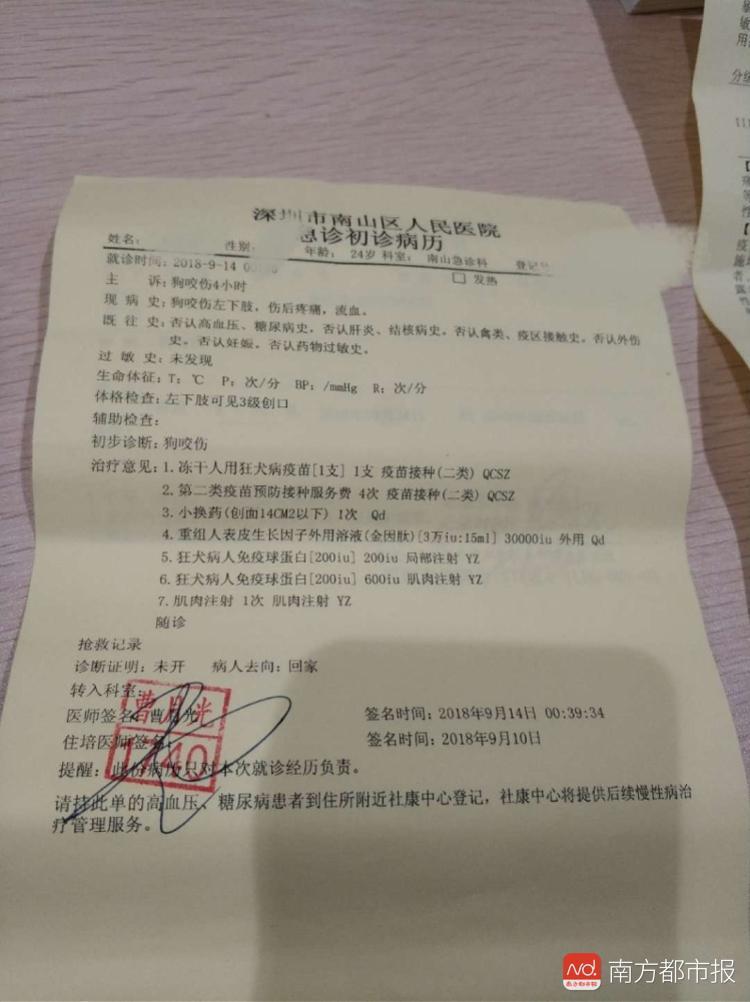 深圳市南山区人民医院
急诊初诊病历
姓名: 性别: 年龄: 24岁 科室: 南山急诊科 登记号
就诊时间: 2018-9-14 □发热
主 诉: 狗咬伤4小时
现 病 史: 狗咬伤左下肢, 伤后疼痛, 流血。
既 往 史: 否认高血压、糖尿病史。否认肝炎、结核病史。否认禽类、疫区接触史。否认外伤
史。否认妊娠。否认药物过敏史。
过 敏 史: 未发现
生命体征: T: ℃ P: 次/分 BP: /mmHg R: 次/分
体格检查: 左下肢可见3级创口
辅助检查:
初步诊断: 狗咬伤
治疗意见: 1. 冻干人用狂犬病疫苗[1支] 1支 疫苗接种(二类) QCSZ
2. 第二类疫苗预防接种服务费 4次 疫苗接种(二类) QCSZ
3. 小换药(创面14CM2以下) 1次 Qd
4. 重组人表皮生长因子外用溶液(金因肽)[3万iu:15ml] 30000iu 外用 Qd
5. 狂犬病人免疫球蛋白[200iu] 200iu 局部注射 YZ
6. 狂犬病人免疫球蛋白[200iu] 600iu 肌肉注射 YZ
7. 肌肉注射 1次 肌肉注射 YZ
随诊
抢救记录
诊断证明: 未开 病人去向: 回家
转入科室:
医师签名: 曹月光 签名时间: 2018年9月14日 00:39:34
住培医师签名: 签名时间: 2018年9月10日
曹月光
1740
提醒: 此份病历只对本次就诊经历负责。
请持此单的高血压、糖尿病患者到住所附近社康中心登记, 社康中心将提供后续慢性病治
疗管理服务。
南方都市报
南方都市报